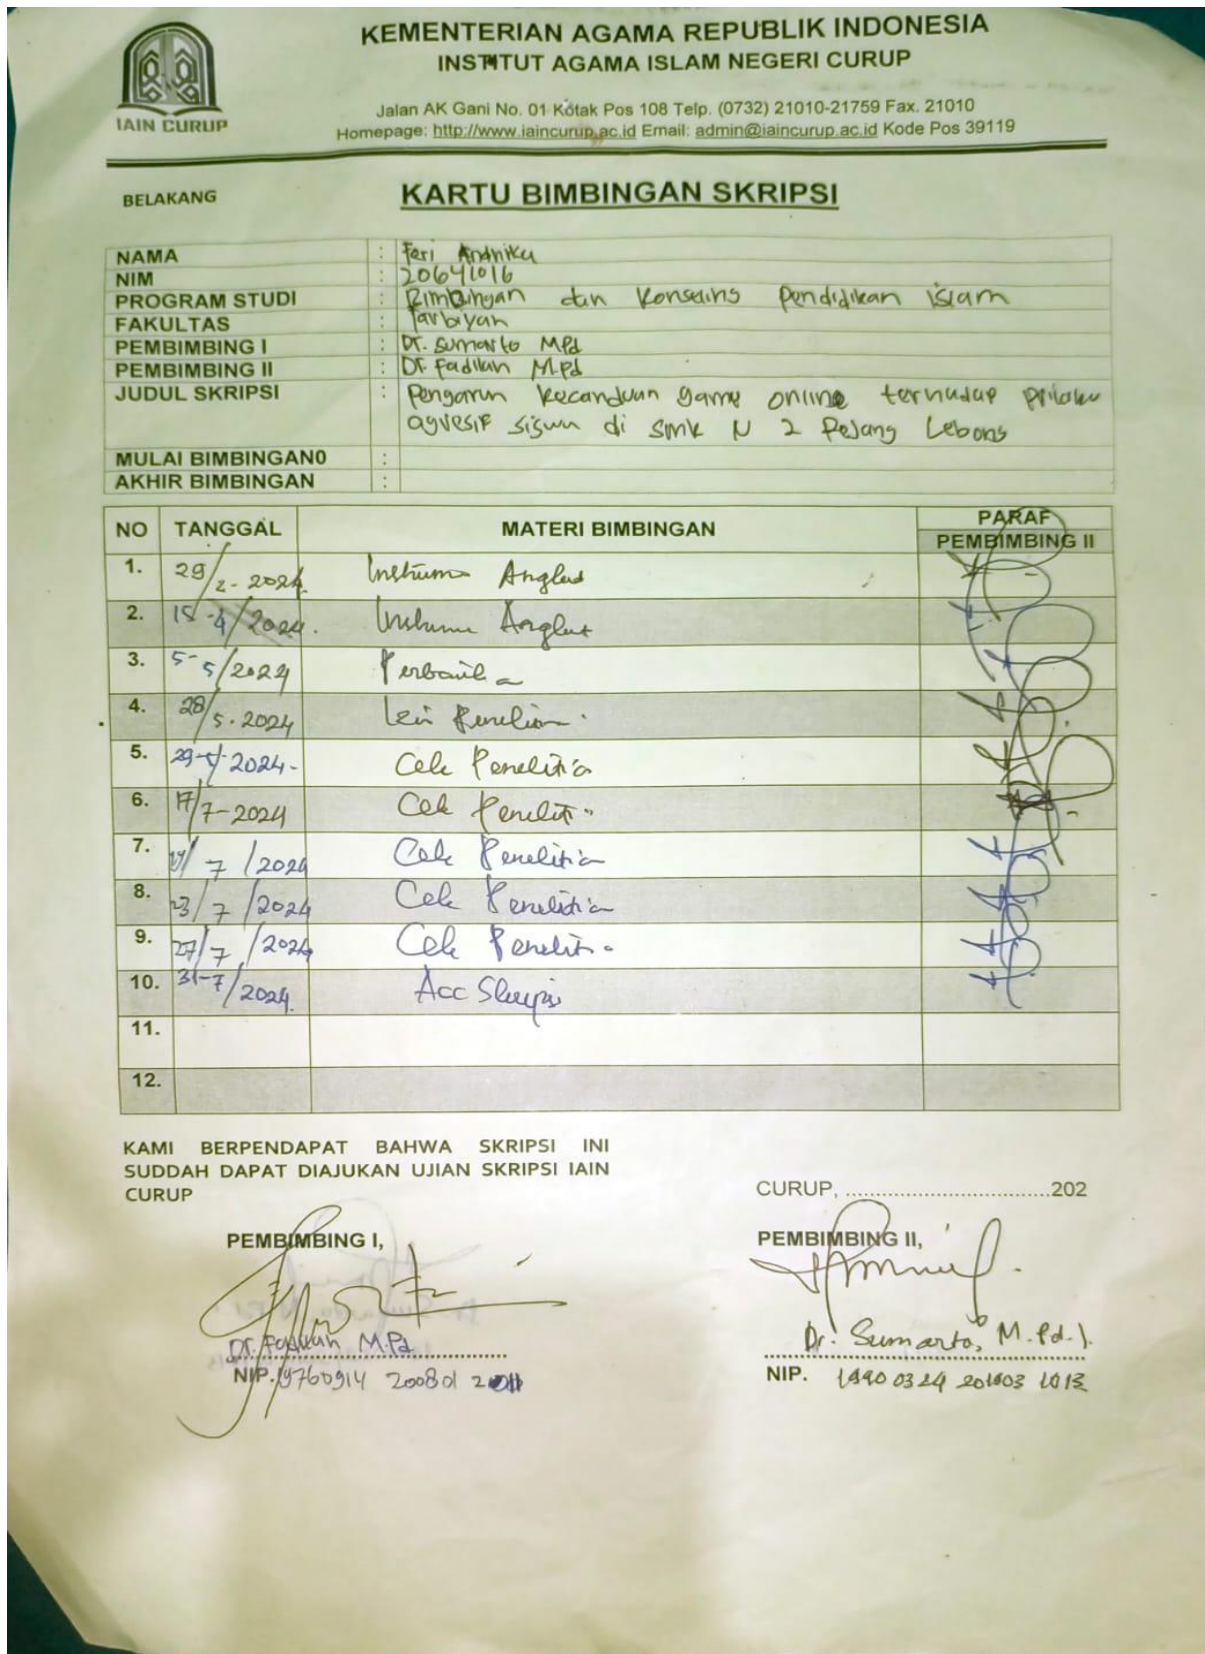 KEMENTERIAN AGAMA REPUBLIK INDONESIA
INSTITUT AGAMA ISLAM NEGERI CURUP
IAIN CURUP
Jalan AK Gani No. 01 Kotak Pos 108 Telp. (0732) 21010-21759 Fax. 21010
Homepage: http://www.iaincurup.ac.id Email: admin@iaincurup.ac.id Kode Pos 39119
BELAKANG
KARTU BIMBINGAN SKRIPSI
NAMA : Feri Andhika
NIM : 20641016
PROGRAM STUDI : Bimbingan dan Konseling Pendidikan islam
FAKULTAS : Tarbiyah
PEMBIMBING I : Dr. Sumarto M.Pd
PEMBIMBING II : Dr. Fadilah M.Pd
JUDUL SKRIPSI : Pengaruh kecanduan game online terhadap prilaku
agresif siswa di smk N 2 Rejang Lebong
MULAI BIMBINGAN0 :
AKHIR BIMBINGAN :
NO TANGGAL MATERI BIMBINGAN PARAF
PEMBIMBING II
1. 29/2-2024 Instrumen Angket
2. 15-4/2024. Instrumen Angket
3. 5-5/2024
4. 28/5.2024 Izin Penelitian.
5. 29-5/2024- Cek Penelitia
6. 17/7-2024 Cek Peneliti
7. /7/2024 Cek Penelitia
8. 23/7/2024 Cek Penelitia
9. 27/7/2024 Cek Peneliti
10. 31-7/2024. Acc Skripsi
11.
12.
KAMI BERPENDAPAT BAHWA SKRIPSI INI
SUDDAH DAPAT DIAJUKAN UJIAN SKRIPSI IAIN
CURUP
CURUP, ................................202
PEMBIMBING I,
PEMBIMBING II,
Dr. Fadilah M.Pd
Dr. Sumarto, M.Pd.I.
NIP. 19760914 200801 2 011
NIP. 19900324 201903 1013